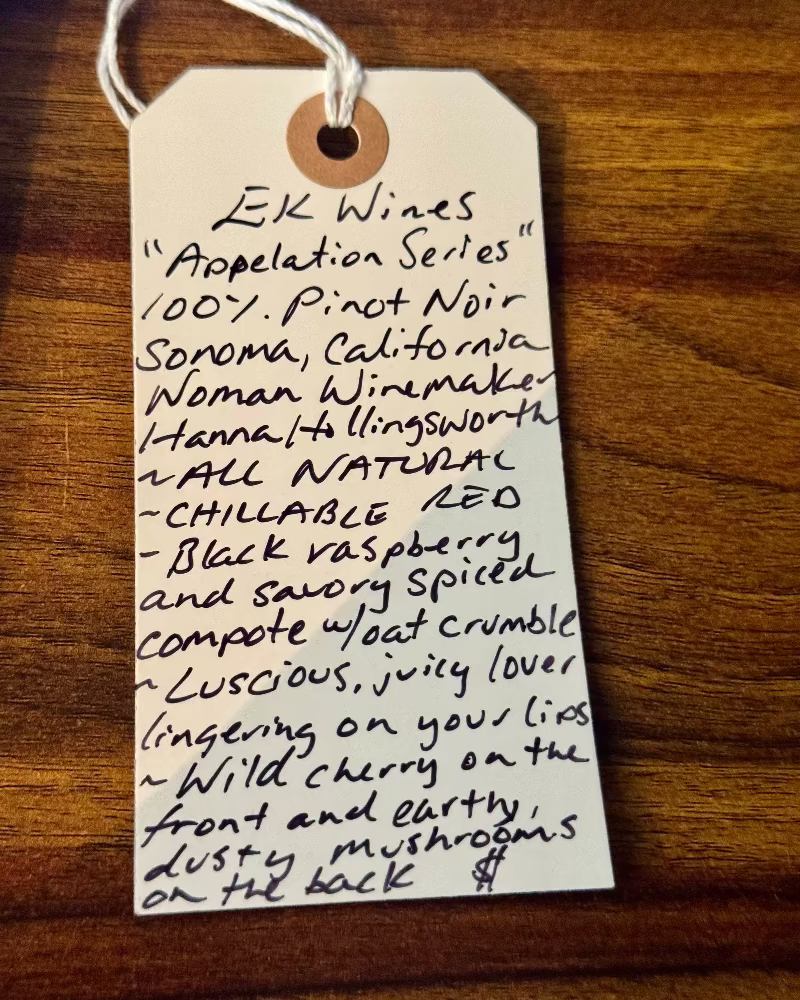 EK Wines
"Appelation Series"
100%. Pinot Noir
Sonoma, California
Woman Winemaker
Hanna Hollingsworth
~ALL NATURAL
~CHILLABLE RED
~Black raspberry
and savory spiced
compote w/oat crumble
~Luscious, juicy lover
lingering on your lips
~Wild cherry on the
front and earthy,
dusty mushrooms
on the back $